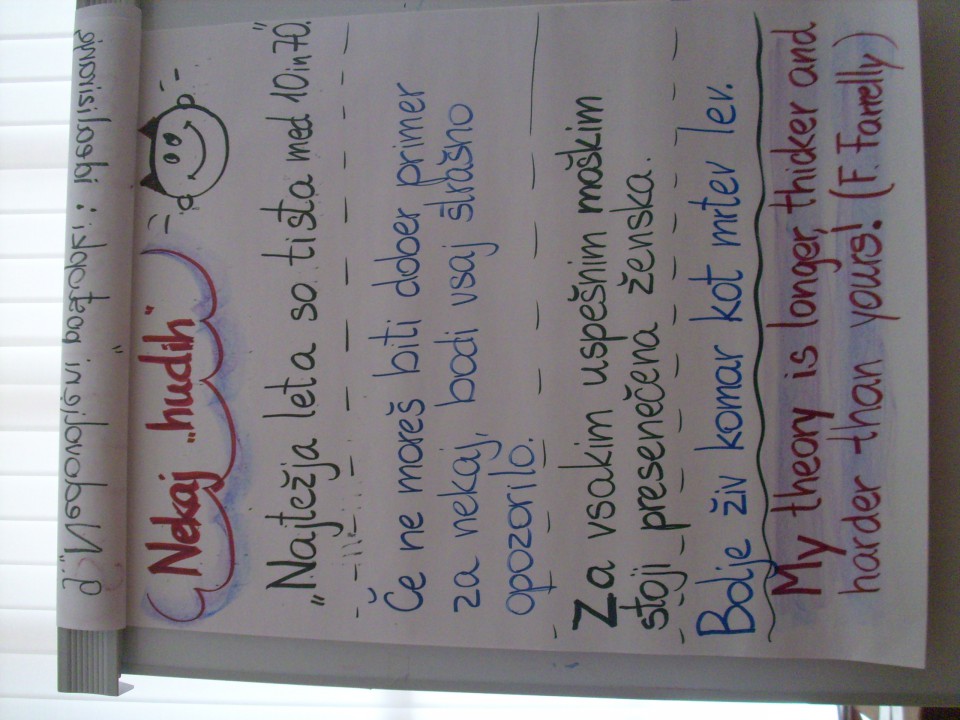 Nekaj „hudih"
„Najtežja leta so tista med 10 in 70."
Če ne moreš biti dober primer
za nekaj, bodi vsaj strašno
opozorilo.
Za vsakim uspešnim moškim
stoji presenečena ženska.
Bolje živ komar kot mrtev lev.
My theory is longer, thicker and
harder than yours! (F. Farrelly)